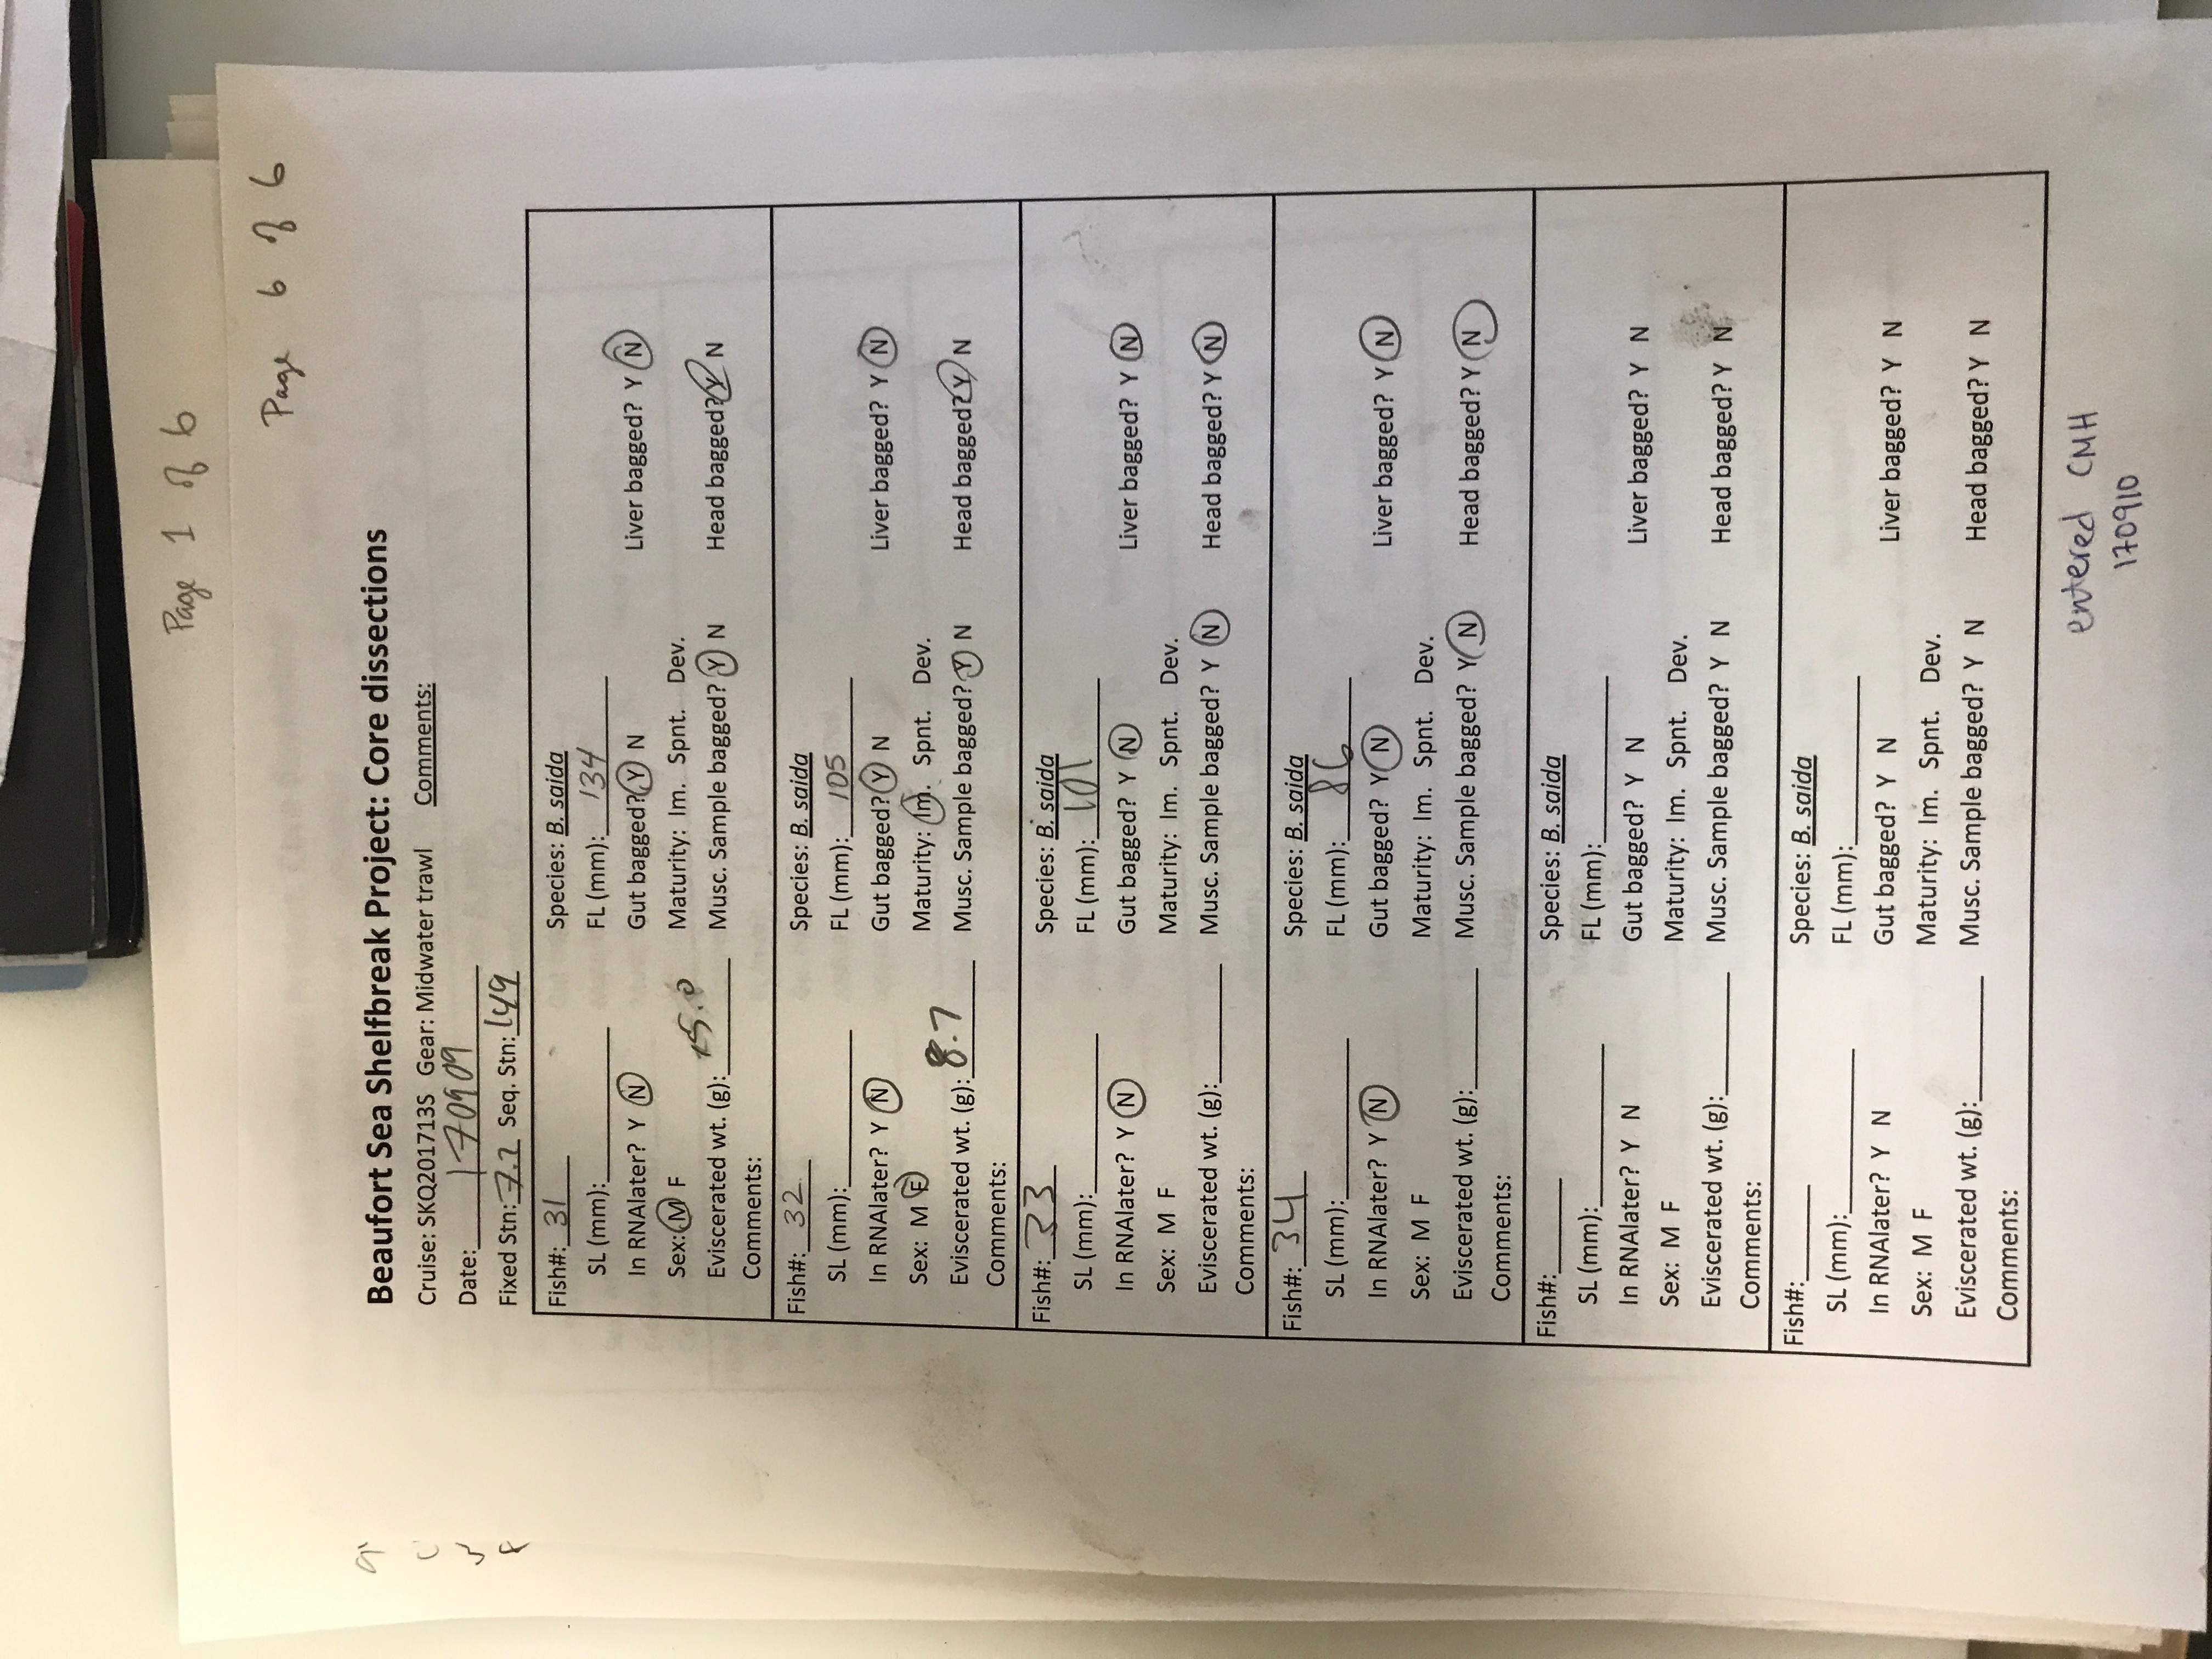 Page 1 of 6
Page 6 of 6
Beaufort Sea Shelfbreak Project: Core dissections
Cruise: SKQ201713S Gear: Midwater trawl Comments:
Date: 170909
Fixed Stn: 7.2 Seq. Stn: 149
Fish#: 31 Species: B. saida
SL (mm): FL (mm): 134
In RNAlater? Y N Gut bagged? Y N Liver bagged? Y N
Sex: M F Maturity: Im. Spnt. Dev.
Eviscerated wt. (g): 15.0 Musc. Sample bagged? Y N Head bagged? Y N
Comments:
Fish#: 32 Species: B. saida
SL (mm): FL (mm): 105
In RNAlater? Y N Gut bagged? Y N Liver bagged? Y N
Sex: M F Maturity: Im. Spnt. Dev.
Eviscerated wt. (g): 8.7 Musc. Sample bagged? Y N Head bagged? Y N
Comments:
Fish#: 33 Species: B. saida
SL (mm): FL (mm): 101
In RNAlater? Y N Gut bagged? Y N Liver bagged? Y N
Sex: M F Maturity: Im. Spnt. Dev.
Eviscerated wt. (g): Musc. Sample bagged? Y N Head bagged? Y N
Comments:
Fish#: 34 Species: B. saida
SL (mm): FL (mm): 86
In RNAlater? Y N Gut bagged? Y N Liver bagged? Y N
Sex: M F Maturity: Im. Spnt. Dev.
Eviscerated wt. (g): Musc. Sample bagged? Y N Head bagged? Y N
Comments:
Fish#: Species: B. saida
SL (mm): FL (mm):
In RNAlater? Y N Gut bagged? Y N Liver bagged? Y N
Sex: M F Maturity: Im. Spnt. Dev.
Eviscerated wt. (g): Musc. Sample bagged? Y N Head bagged? Y N
Comments:
Fish#: Species: B. saida
SL (mm): FL (mm):
In RNAlater? Y N Gut bagged? Y N Liver bagged? Y N
Sex: M F Maturity: Im. Spnt. Dev.
Eviscerated wt. (g): Musc. Sample bagged? Y N Head bagged? Y N
Comments:
entered CMH
170910